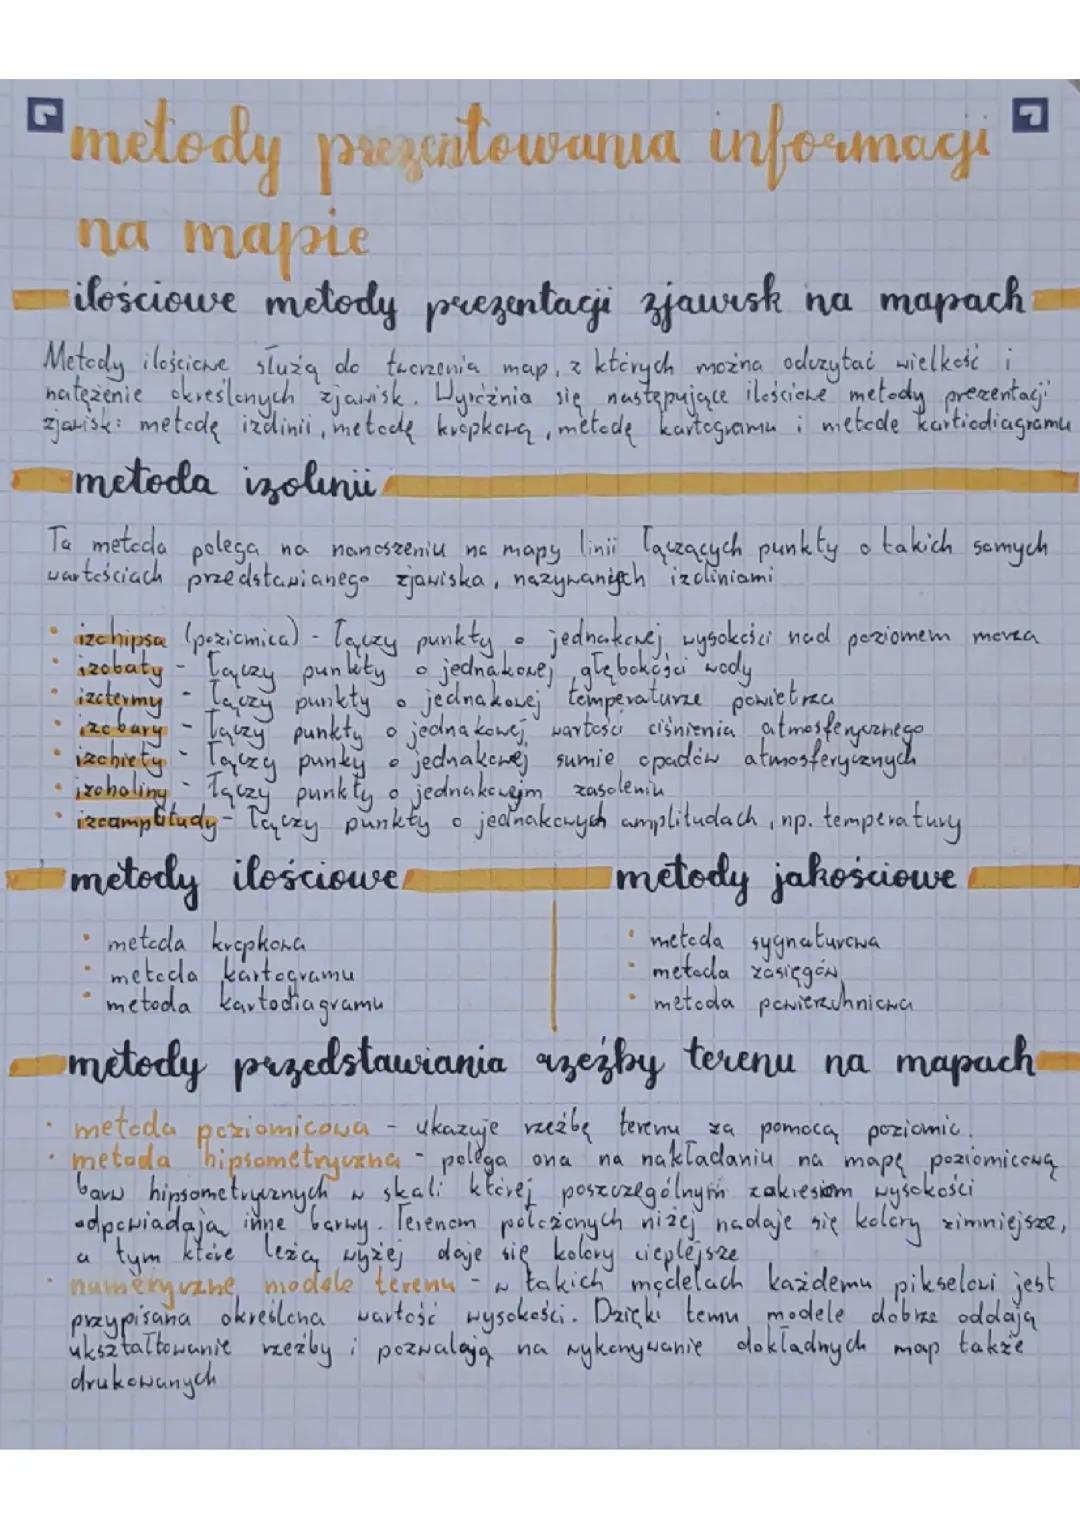 metody prezentowania informacji
na mapie
ilościowe metody prezentacji zjawisk na mapach
Metody ilościowe służą do tworzenia map, z których można odczytać wielkość i
natężenie określonych zjawisk. Wyróżnia się następujące ilościowe metody prezentacji
zjawisk: metodę izolinii, metodę kropkową, metodę kartogramu i metodę kartiodiagramu
metoda izolinii
Ta metoda polega na nanoszeniu na mapy linii łączących punkty o takich samych
wartościach przedstawianego zjawiska, nazywanych izoliniami
• izohipsa (poziomica) - łączy punkty o jednakowej wysokości nad poziomem morza
• izobaty - łączy punkty o jednakowej głębokości wody
• izotermy - łączy punkty o jednakowej temperaturze powietrza
• izobary - łączy punkty o jednakowej wartości ciśnienia atmosferycznego
• izohiety - łączy punky o jednakowej sumie opadów atmosferycznych
• izohaliny - łączy punkty o jednakowym zasoleniu
• izoamplitudy - łączy punkty o jednakowych amplitudach, np. temperatury
metody ilościowe
• metoda kropkowa
• metoda kartogramu
• metoda kartodiagramu
metody jakościowe
• metoda sygnaturowa
• metoda zasięgów
• metoda powierzchniowa
metody przedstawiania rzeźby terenu na mapach
• metoda poziomicowa - ukazuje rzeźbę terenu za pomocą poziomic.
• metoda hipsometryczna - polega ona na nakładaniu na mapę poziomicową
barw hipsometrycznych w skali której poszczególnym zakresom wysokości
odpowiadają inne barwy. Terenom położonych niżej nadaje się kolory zimniejsze,
a tym które leżą wyżej daje się kolory cieplejsze
• numeryczne modele terenu - w takich modelach każdemu pikselowi jest
przypisana określona wartość wysokości. Dzięki temu modele dobrze oddają
ukształtowanie rzeźby i pozwalają na wykonywanie dokładnych map także
drukowanych